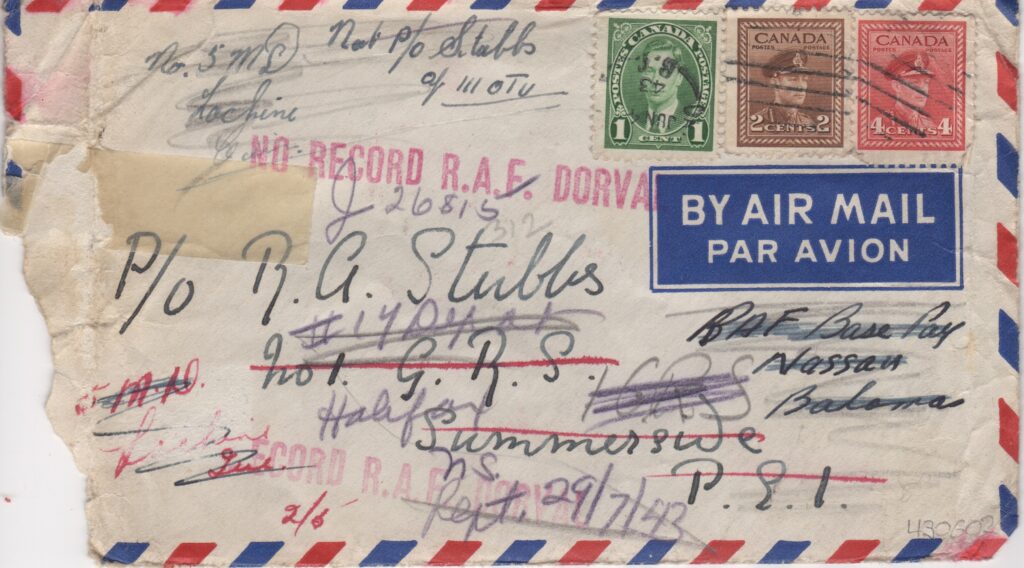 No. 5 M D
Not P/o Stubbs
of 111 OTU
Lachine
POSTES CANADA POSTAGE
JUN
43
1 CENT 1
CANADA
POSTES POSTAGE
2 CENTS 2
CANADA
POSTES POSTAGE
4 CENTS 4
NO RECORD R.A.F. DORVAL
J 26815
312
BY AIR MAIL
PAR AVION
P/o R. A. Stubbs
RAF Base
Nassau
Bahamas
No 1. G. R. S.
1 GRS
5 M D.
Halifax
Summerside
Lachine
Que.
N.S.
P. E. I.
RECORD R.A.F. DORVAL
Rept. 29/7/43
2/5